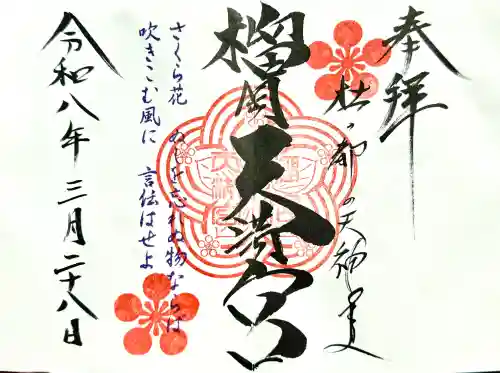 奉拝
杜の都の天神さま
榴岡天満宮
さくら花　ぬしを忘れぬ物ならば
吹きこむ風に　言伝はせよ
令和八年三月二十八日